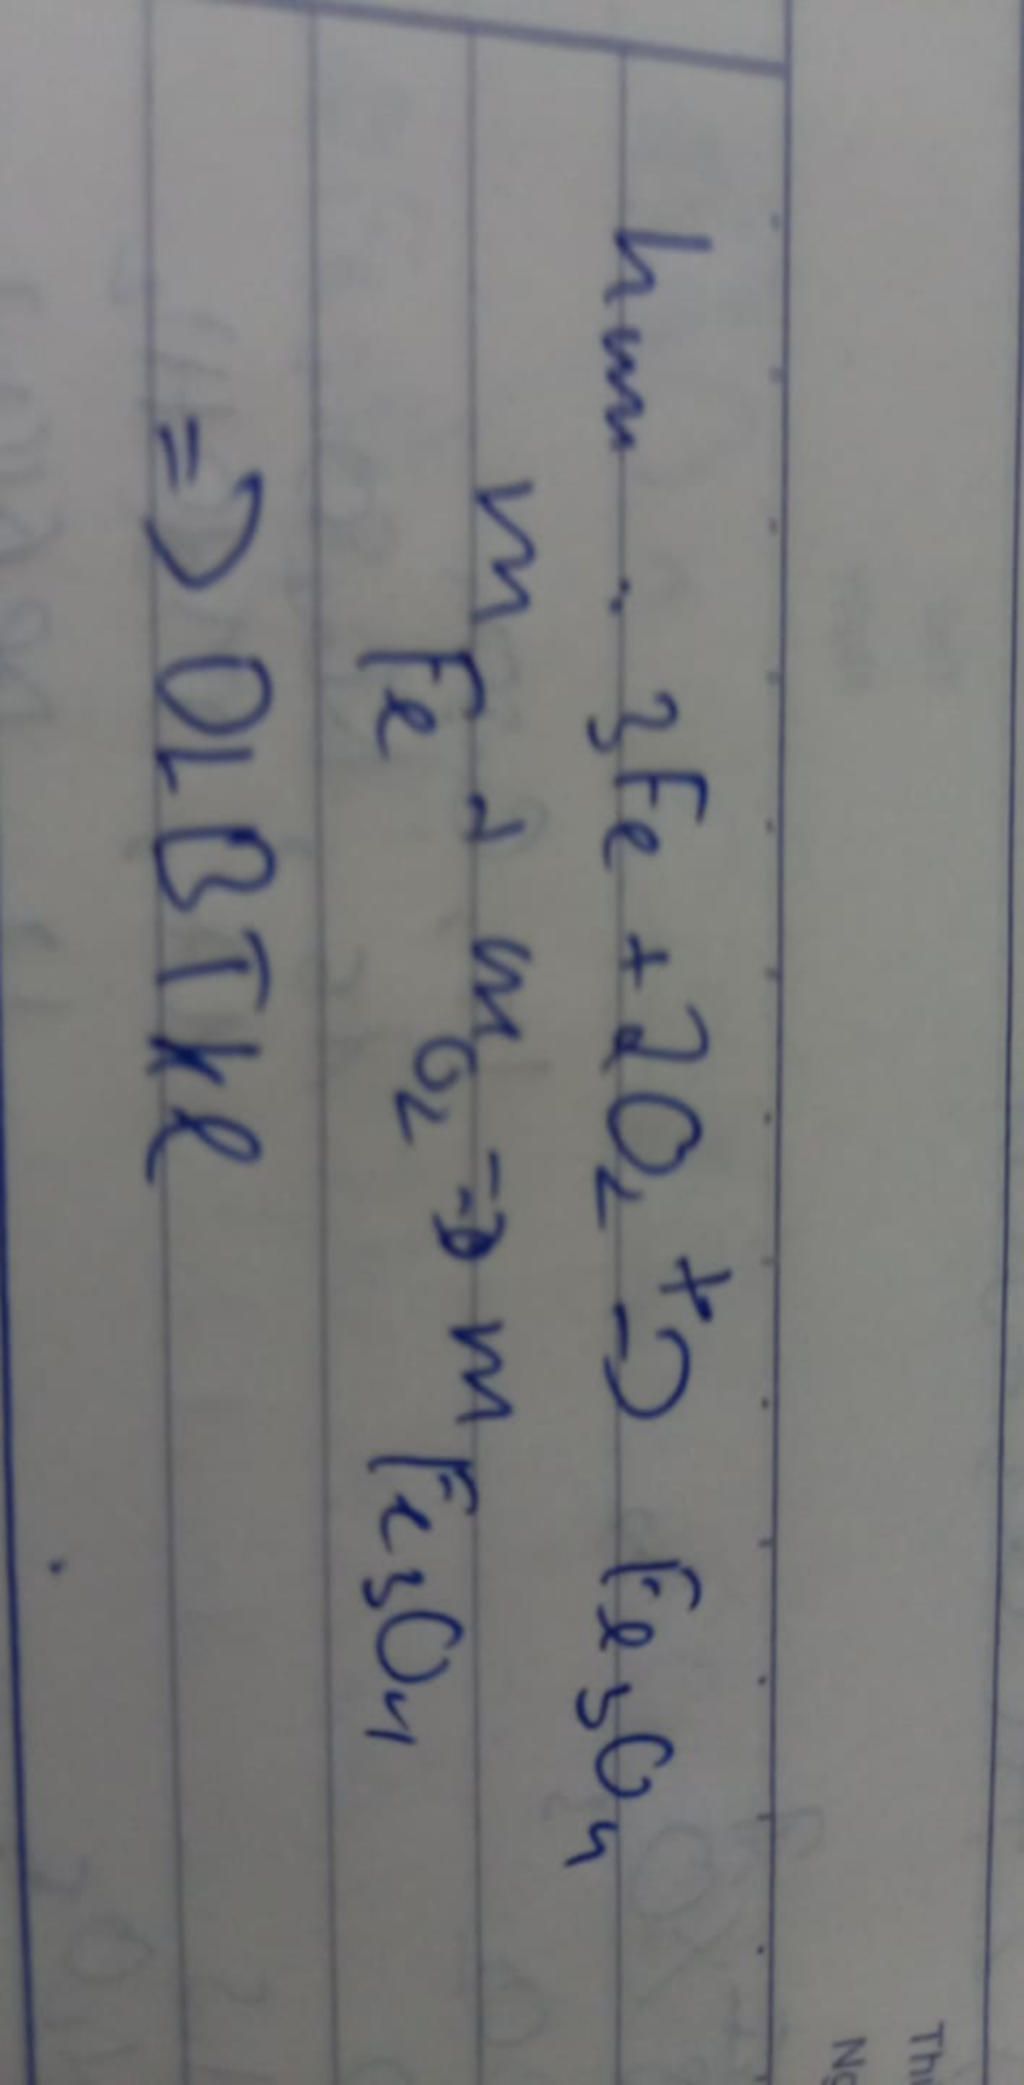 3Fe + 2O₂ t° → Fe₃O₄
m Fe + m O₂ → m Fe₃O₄
=> DLBTKL
Th
Ng